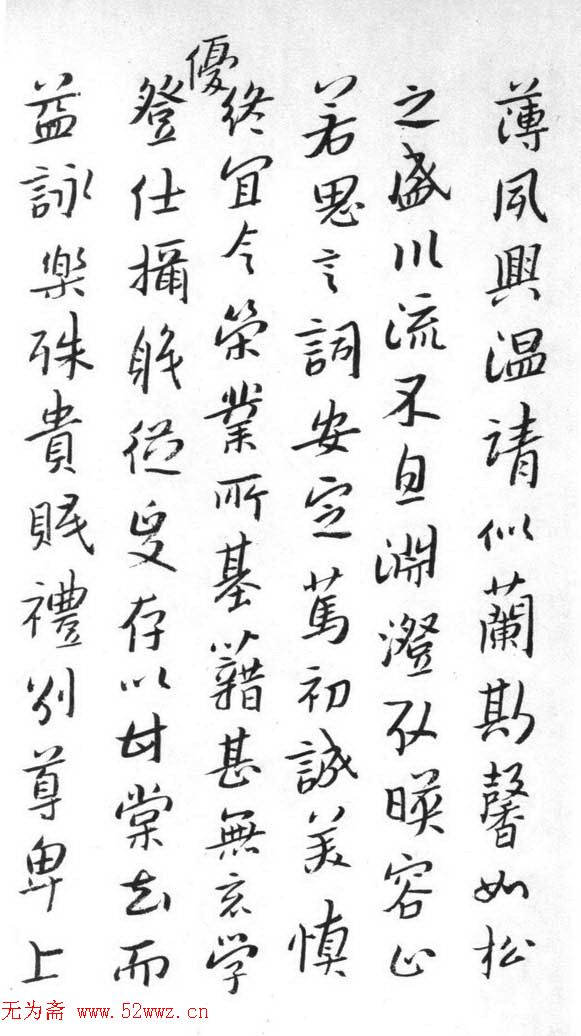 薄夙興温清似蘭斯馨如松
之盛川流不息淵澄取暎容止
若思言詞安定篤初誠美慎
終宜令榮業所基藉甚無竟学
優
登仕攝職從政存以甘棠去而
益詠樂殊貴賤禮別尊卑上
无为斋 www.52wwz.cn